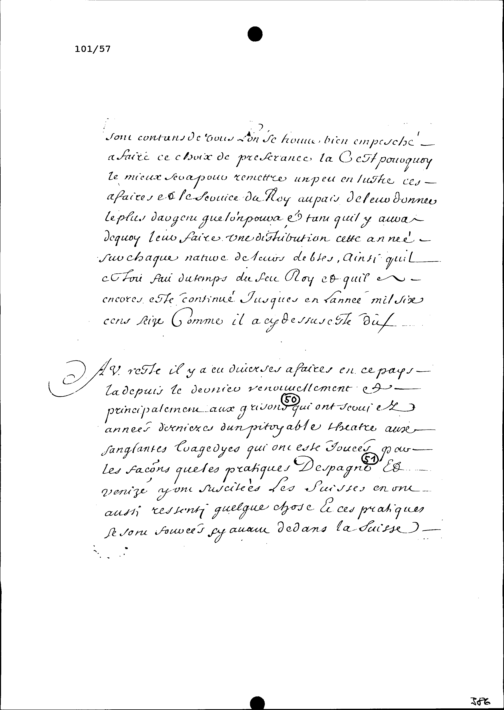 101/57
sont contans de vous L'on se trouve bien empesché
a faire ce choix de preferance la C'est pourquoy
le mieux sera pour remettre un peu en lustre ces
afaires et le service du Roy au pais de leur donner
le plus d'argent que l'on pourra et tant qu'il y aura
dequoy leur faire une distribution cette année
sur chaque nature de leurs debtes, Ainsi quil
estoit fait du temps du feu Roy et quil
encores esté continué Jusques en l'année mil six
cens seize Comme il a cy dessus esté dit
AU reste il y a eu diverses afaires en ce pays
la depuis le dernier renouvellement et
principalement aux grisons (50) qui ont servi es
années dernieres d'un pitoyable theatre aux
sanglantes tragedyes qui ont esté Jouées par
les façons que les pratiques D'espagne (51) Et
venize y ont suscitées Les Suisses en ont
aussi ressenti quelque chose Et ces pratiques
se sont trouvées sy avant dedans la Suisse
586